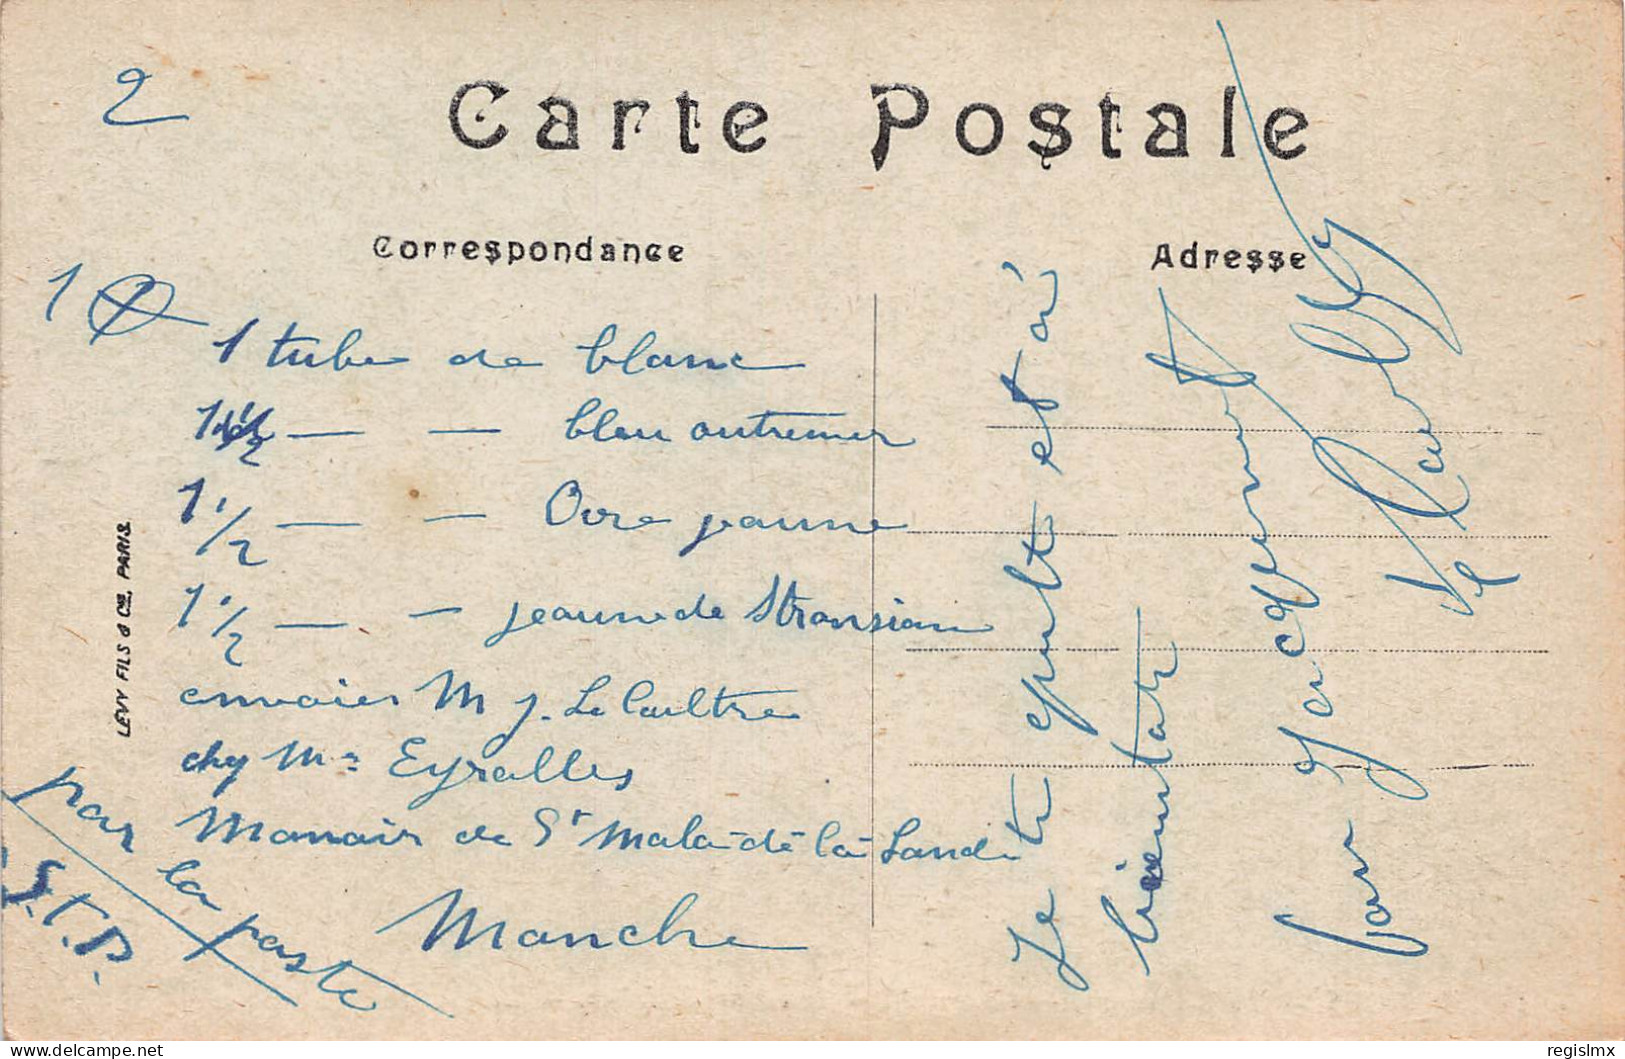 2
Carte Postale
Correspondance
Adresse
1
1 tube de blanc
1 1/2 — — bleu outremer
1 1/2 — — Ocre jaune
1 1/2 — — jeaune de Stronsian
envoier M J. Le Coultre
chez Me Eyrolles
Manoir de St Malo-de-la-Lande
Manche
par la poste
S.V.P.
LEVY FILS & Cie, PARIS
Je te quitte et à
bientôt
ton
Delcampe
regislmx